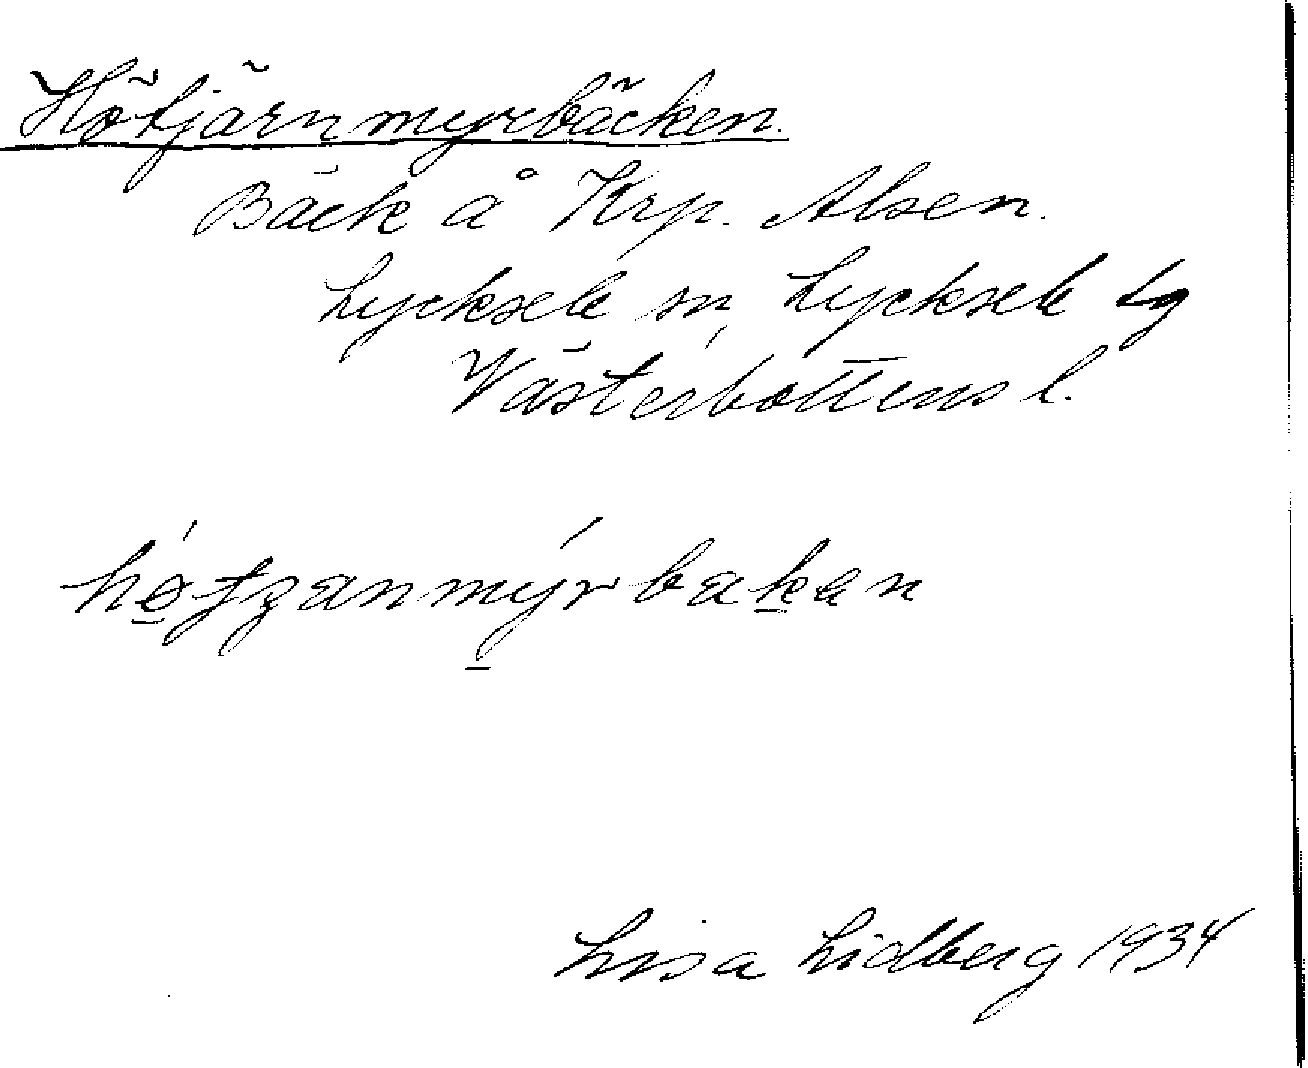 Hötjärnmyrbäcken.
Bäck å Krp. Alsen.
Lycksele sn, Lycksele lg
Västerbottens l.
Lisa Lidberg 1934